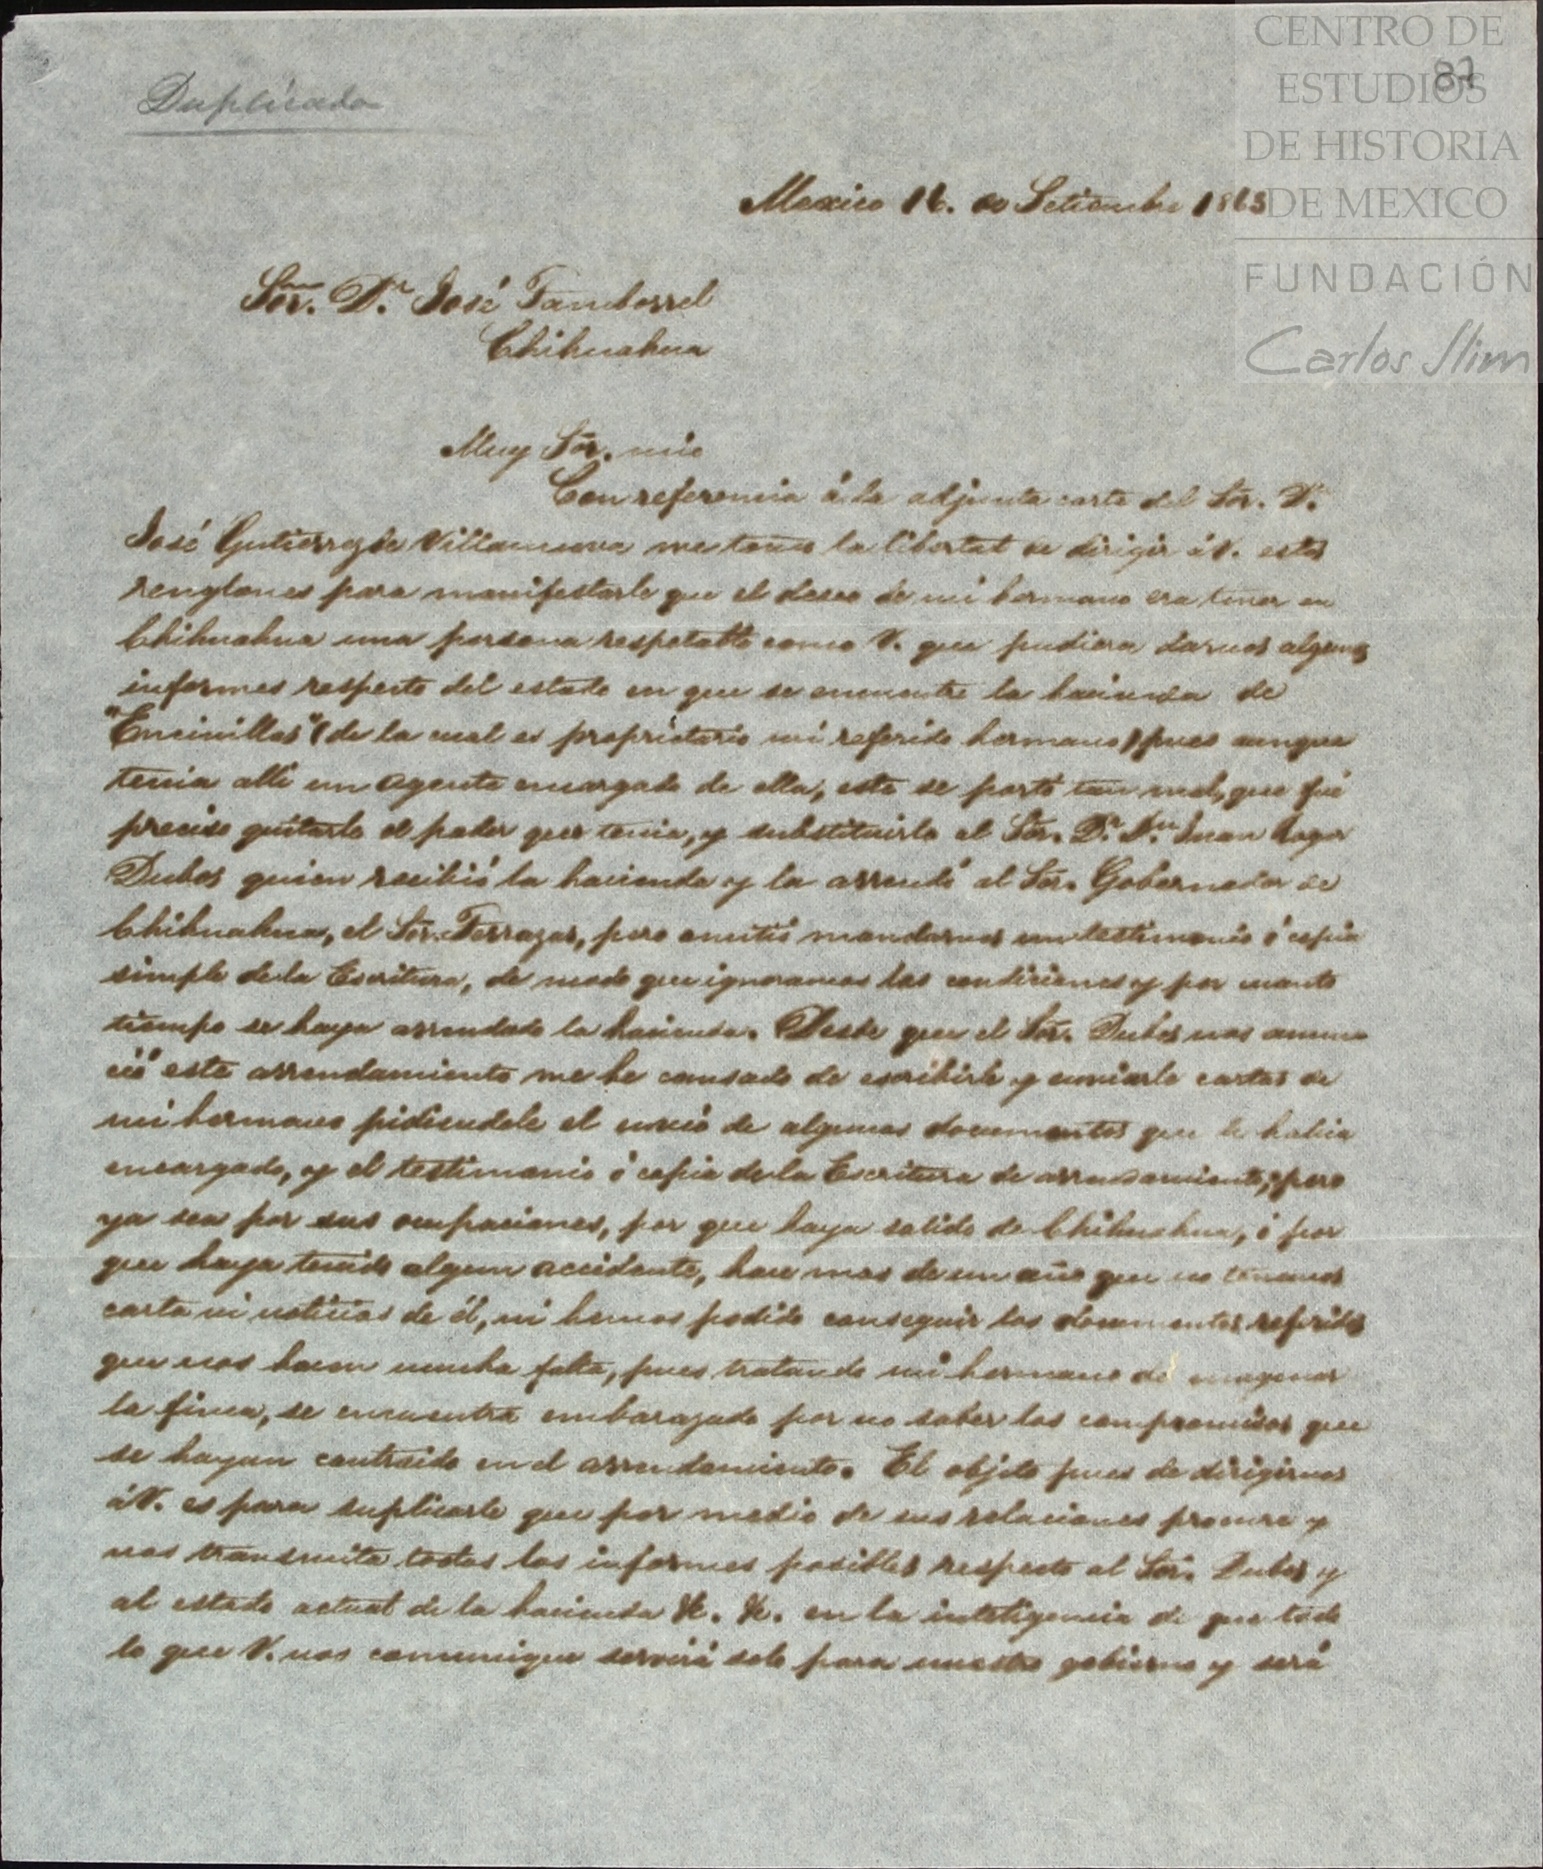 Duplicado
87
CENTRO DE
ESTUDIOS
DE HISTORIA
DE MEXICO
FUNDACIÓN
Carlos Slim
Mexico 16. de Setiembre 1863
Sōr. Dn. José Tamborrel
Chihuahua
Muy Sōr. mio
Con referencia á la adjunta carta del Sōr. Dn.
José Gutierrez de Villanueva me tomo la libertat de dirigir á V. estos
renglones para manifestarle que el deseo de mi hermano era tener en
Chihuahua una persona respetable como V. que pudiera darnos algunos
informes respecto del estado en que se encuentre la hacienda de
"Encinillas" (de la cual es proprietario mi referido hermano) pues aunque
tenia allí un agente encargado de ella, este se portó tan mal, que fué
preciso quitarle el poder que tenia, y substituirlo al Sōr. Dn. Juan
Dubos quien recibió la hacienda y la arrendó al Sōr. Gobernador de
Chihuahua, el Sōr. Terrazas, pero omitió mandarnos un testimonio ó copia
simple de la Escritura, de modo que ignoramos las condiciones y por cuanto
tiempo se haya arrendado la hacienda. Desde que el Sōr. Dubos nos anun
ció este arrendamiento me he cansado de escribirle y enviarle cartas de
mi hermano pidiendole el envió de algunos documentos que le habia
encargado, y el testimonio ó copia de la Escritura de arrendamiento; pero
ya sea por sus ocupaciones, por que haya salido de Chihuahua, ó por
que haya tenido algun accidente, hace mas de un año que no tenemos
carta ni noticias de él, ni hemos podido conseguir los documentos referidos
que nos hacen mucha falta, pues tratando mi hermano de enagenar
la finca, se encuentra embarazado por no saber los compromisos que
se hayan contraido en el arrendamiento. El objeto pues de dirigirnos
á V. es para suplicarle que por medio de sus relaciones procure y
nos transmita todos los informes posibles respecto al Sōr. Dubos y
al estado actual de la hacienda &c. &c. en la inteligencia de que todo
lo que V. nos comunique servirá solo para nuestro gobierno y será